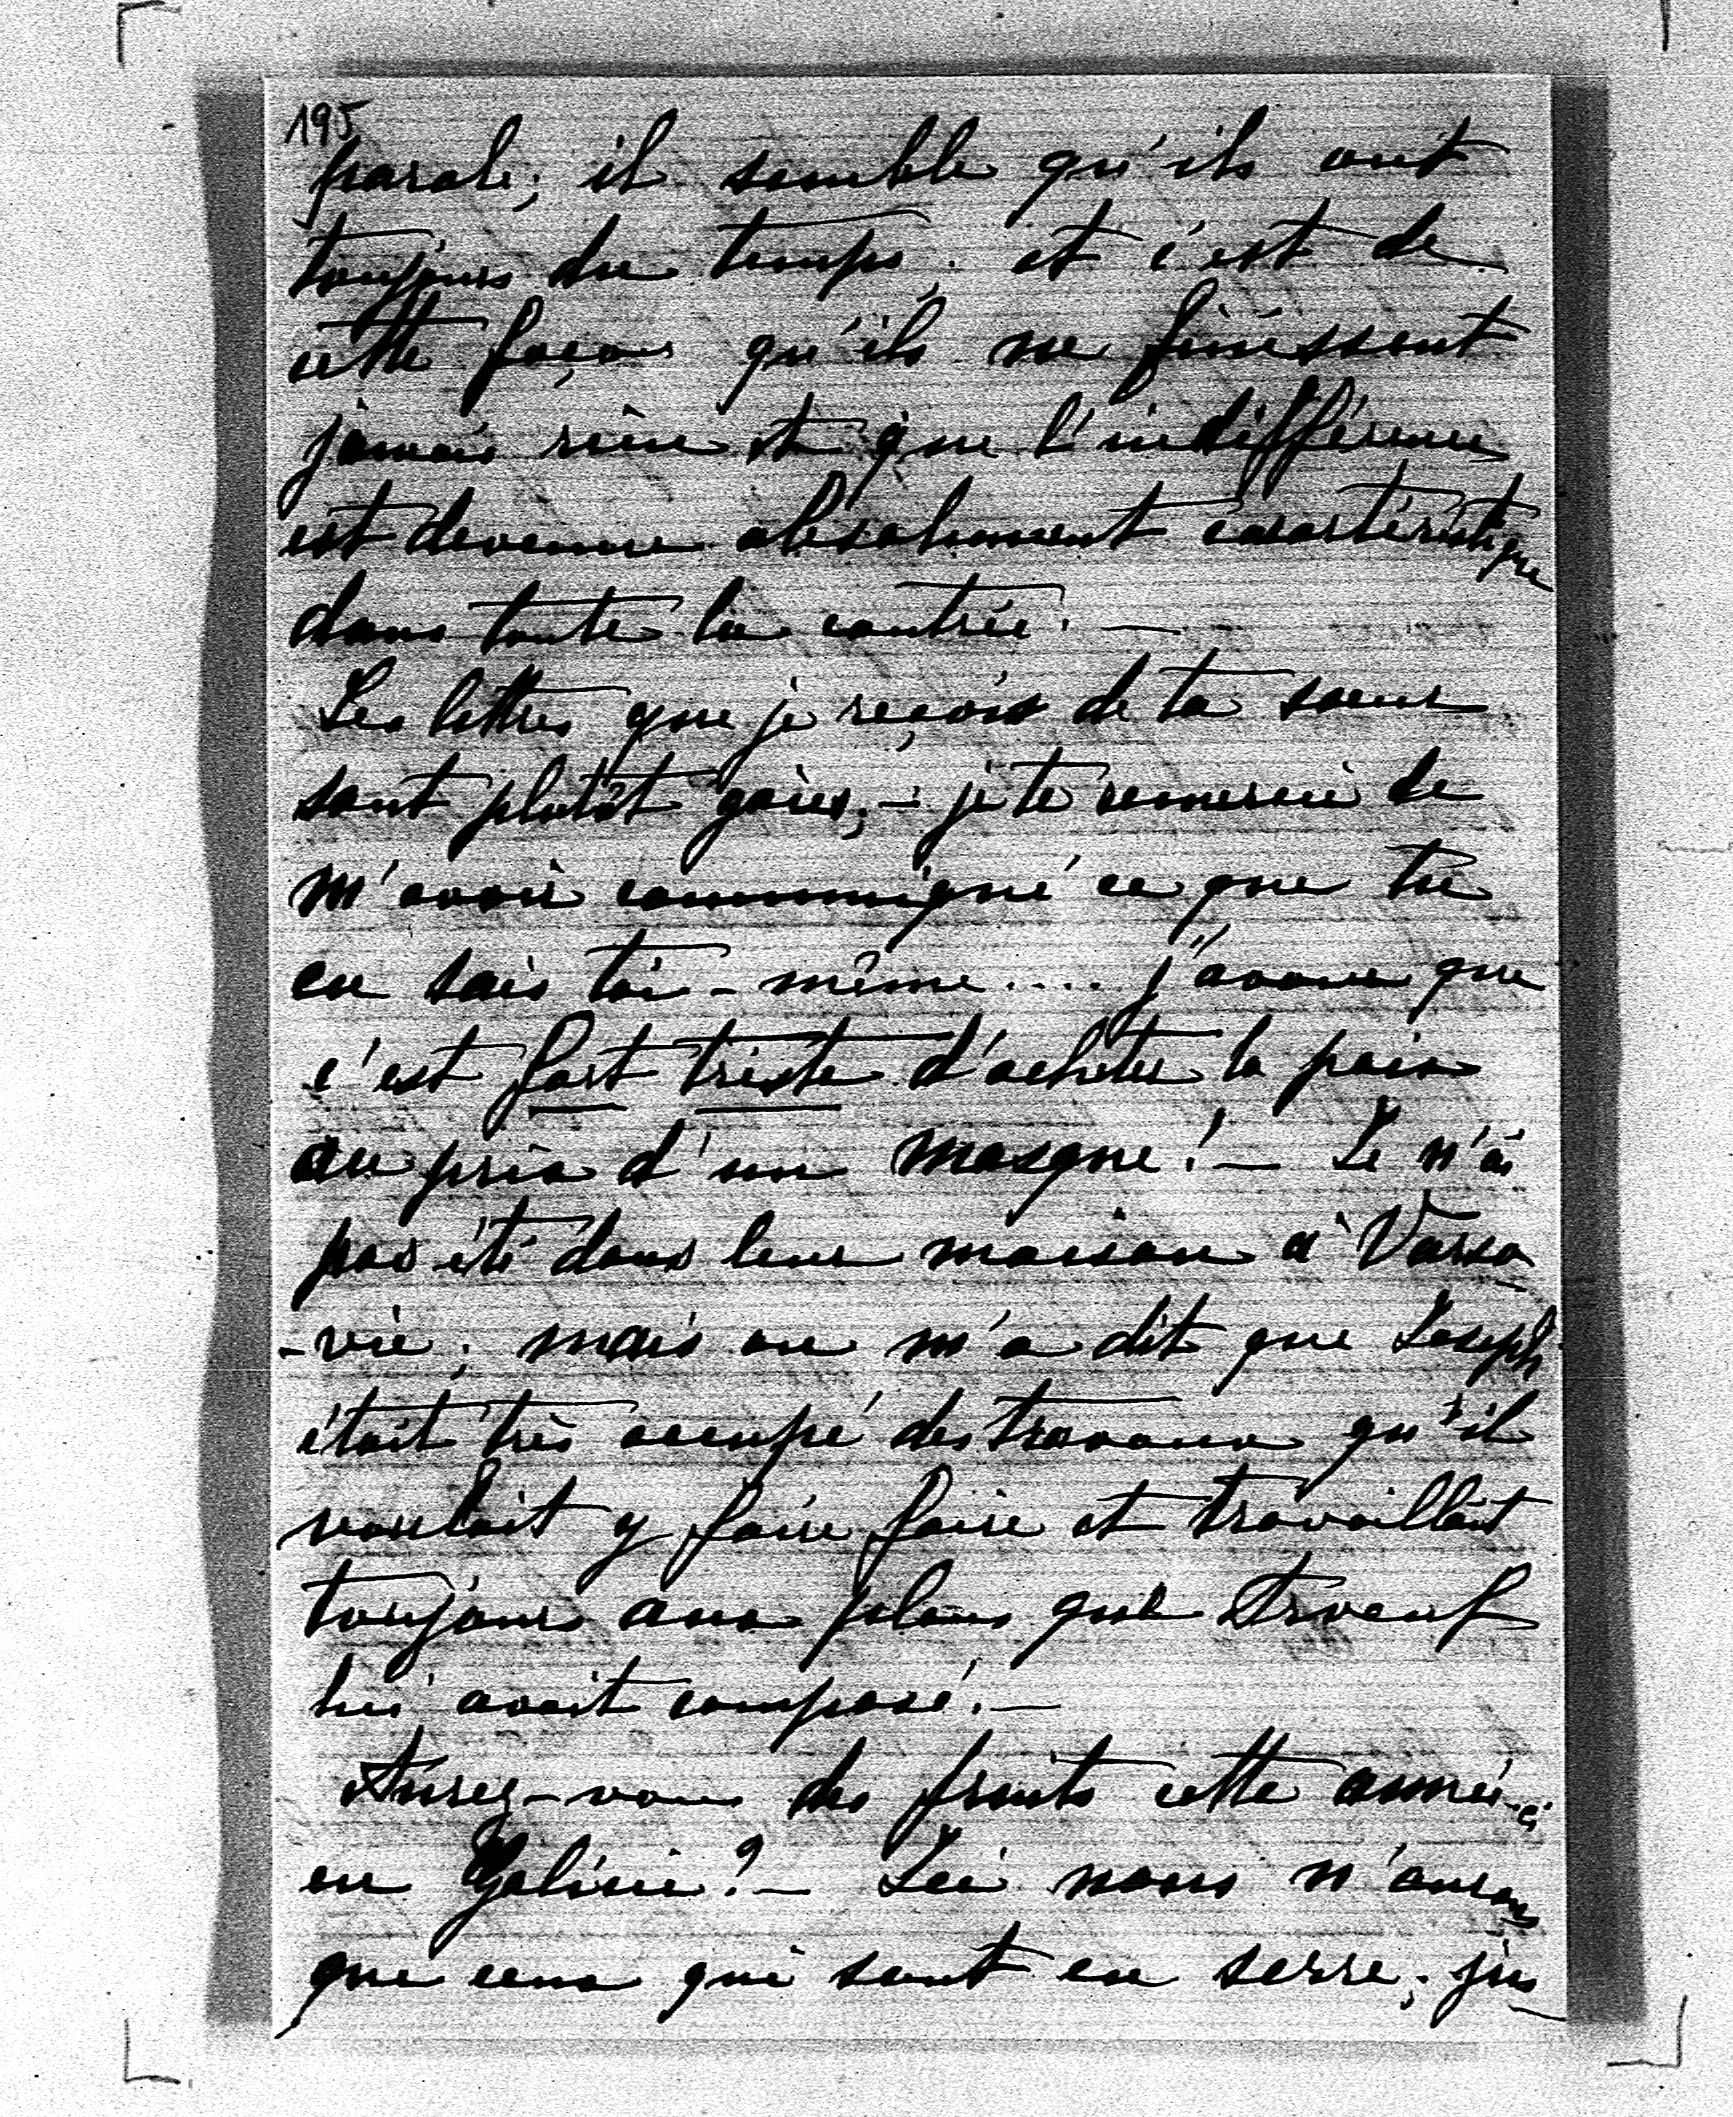 195
parole; il semble qu'ils ont
toujours du temps, et c'est de
cette façon qu'ils ne finissent
jamais rien et que l'indifférence
est devenue absolument caractéristique
dans toute la contrée. —
Les lettres que je reçois de ta sœur
sont plutôt gaies; — je te remercie de
m'avoir communiqué ce que tu
en sais toi-même.... j'avoue que
c'est fort triste d'acheter la paix
au prix d'un masque! — Je n'ai
pas été dans leur maison à Varso-
-vie; mais on m'a dit que Joseph
était très occupé des travaux qu'il
voulait y faire faire et travaillait
toujours aux plans que
lui avait composé. —
Aurez-vous des fruits cette année-ci
en Galicie? — Ici nous n'aurons
que ceux qui sont en serre; jus